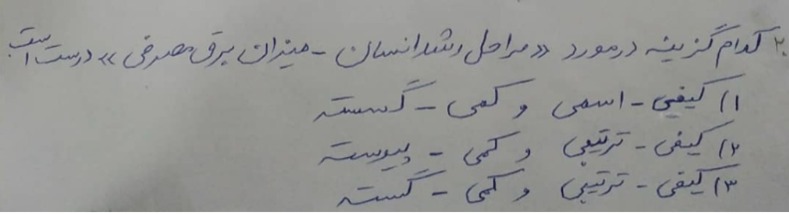 ۲. کدام گزینه درمورد «مراحل رشد انسان - میزان برق مصرفی» درست است
۱) کیفی - اسمی و کمی - گسسته
۲) کیفی - ترتیبی و کمی - پیوسته
۳) کیفی - ترتیبی و کمی - گسسته